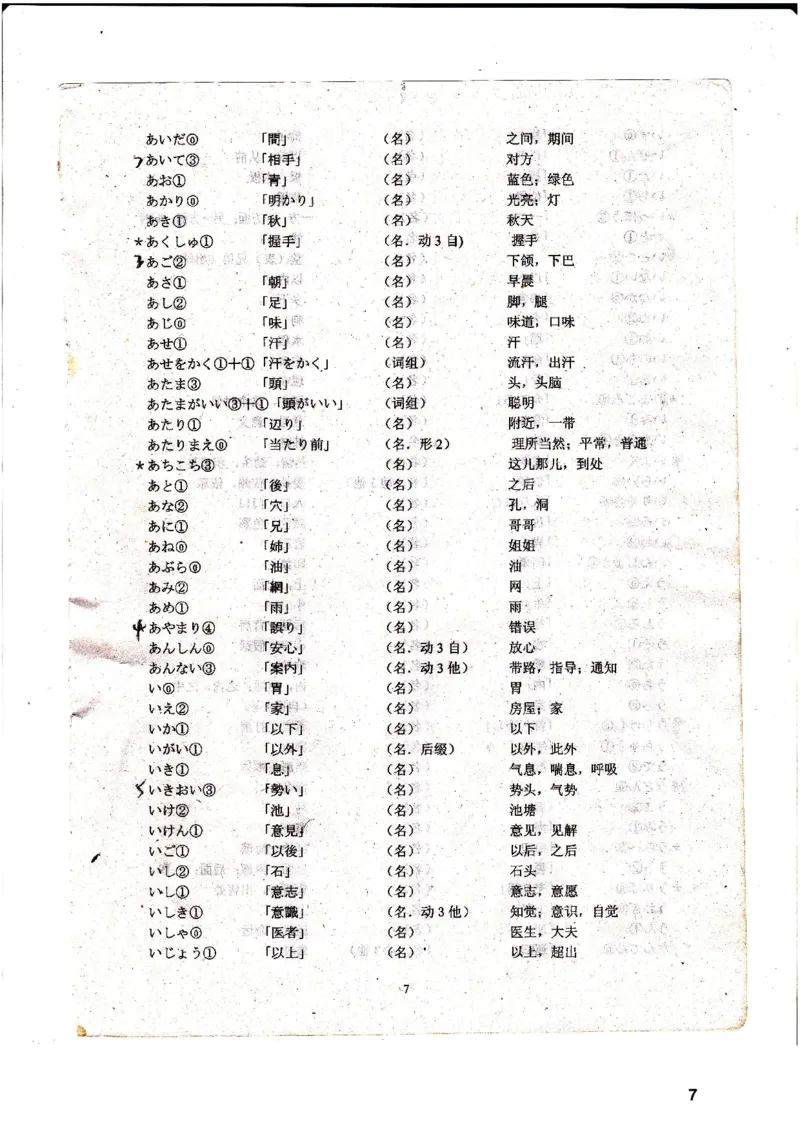 あいだ⓪ 「間」 (名) 之间，期间
あいて③ 「相手」 (名) 对方
あお① 「青」 (名) 蓝色；绿色
あかり⓪ 「明かり」 (名) 光亮；灯
あき① 「秋」 (名) 秋天
*あくしゅ① 「握手」 (名．动3自) 握手
あご② (名) 下颌，下巴
あさ① 「朝」 (名) 早晨
あし② 「足」 (名) 脚，腿
あじ⓪ 「味」 (名) 味道，口味
あせ① 「汗」 (名) 汗
あせをかく①+① 「汗をかく」 (词组) 流汗，出汗
あたま③ 「頭」 (名) 头，头脑
あたまがいい③+① 「頭がいい」 (词组) 聪明
あたり① 「辺り」 (名) 附近，一带
あたりまえ⓪ 「当たり前」 (名．形2) 理所当然；平常，普通
*あちこち③ (名) 这儿那儿，到处
あと① 「後」 (名) 之后
あな② 「穴」 (名) 孔，洞
あに① 「兄」 (名) 哥哥
あね⓪ 「姉」 (名) 姐姐
あぶら⓪ 「油」 (名) 油
あみ② 「網」 (名) 网
あめ① 「雨」 (名) 雨
あやまり④ 「誤り」 (名) 错误
あんしん⓪ 「安心」 (名．动3自) 放心
あんない③ 「案内」 (名．动3他) 带路，指导；通知
い⓪ 「胃」 (名) 胃
いえ② 「家」 (名) 房屋；家
いか① 「以下」 (名) 以下
いがい① 「以外」 (名．后缀) 以外，此外
いき① 「息」 (名) 气息，喘息，呼吸
いきおい③ 「勢い」 (名) 势头，气势
いけ② 「池」 (名) 池塘
いけん① 「意見」 (名) 意见，见解
いご① 「以後」 (名) 以后，之后
いし② 「石」 (名) 石头
いし① 「意志」 (名) 意志，意愿
いしき① 「意識」 (名．动3他) 知觉；意识，自觉
いしゃ⓪ 「医者」 (名) 医生，大夫
いじょう① 「以上」 (名) 以上，超出
7
7